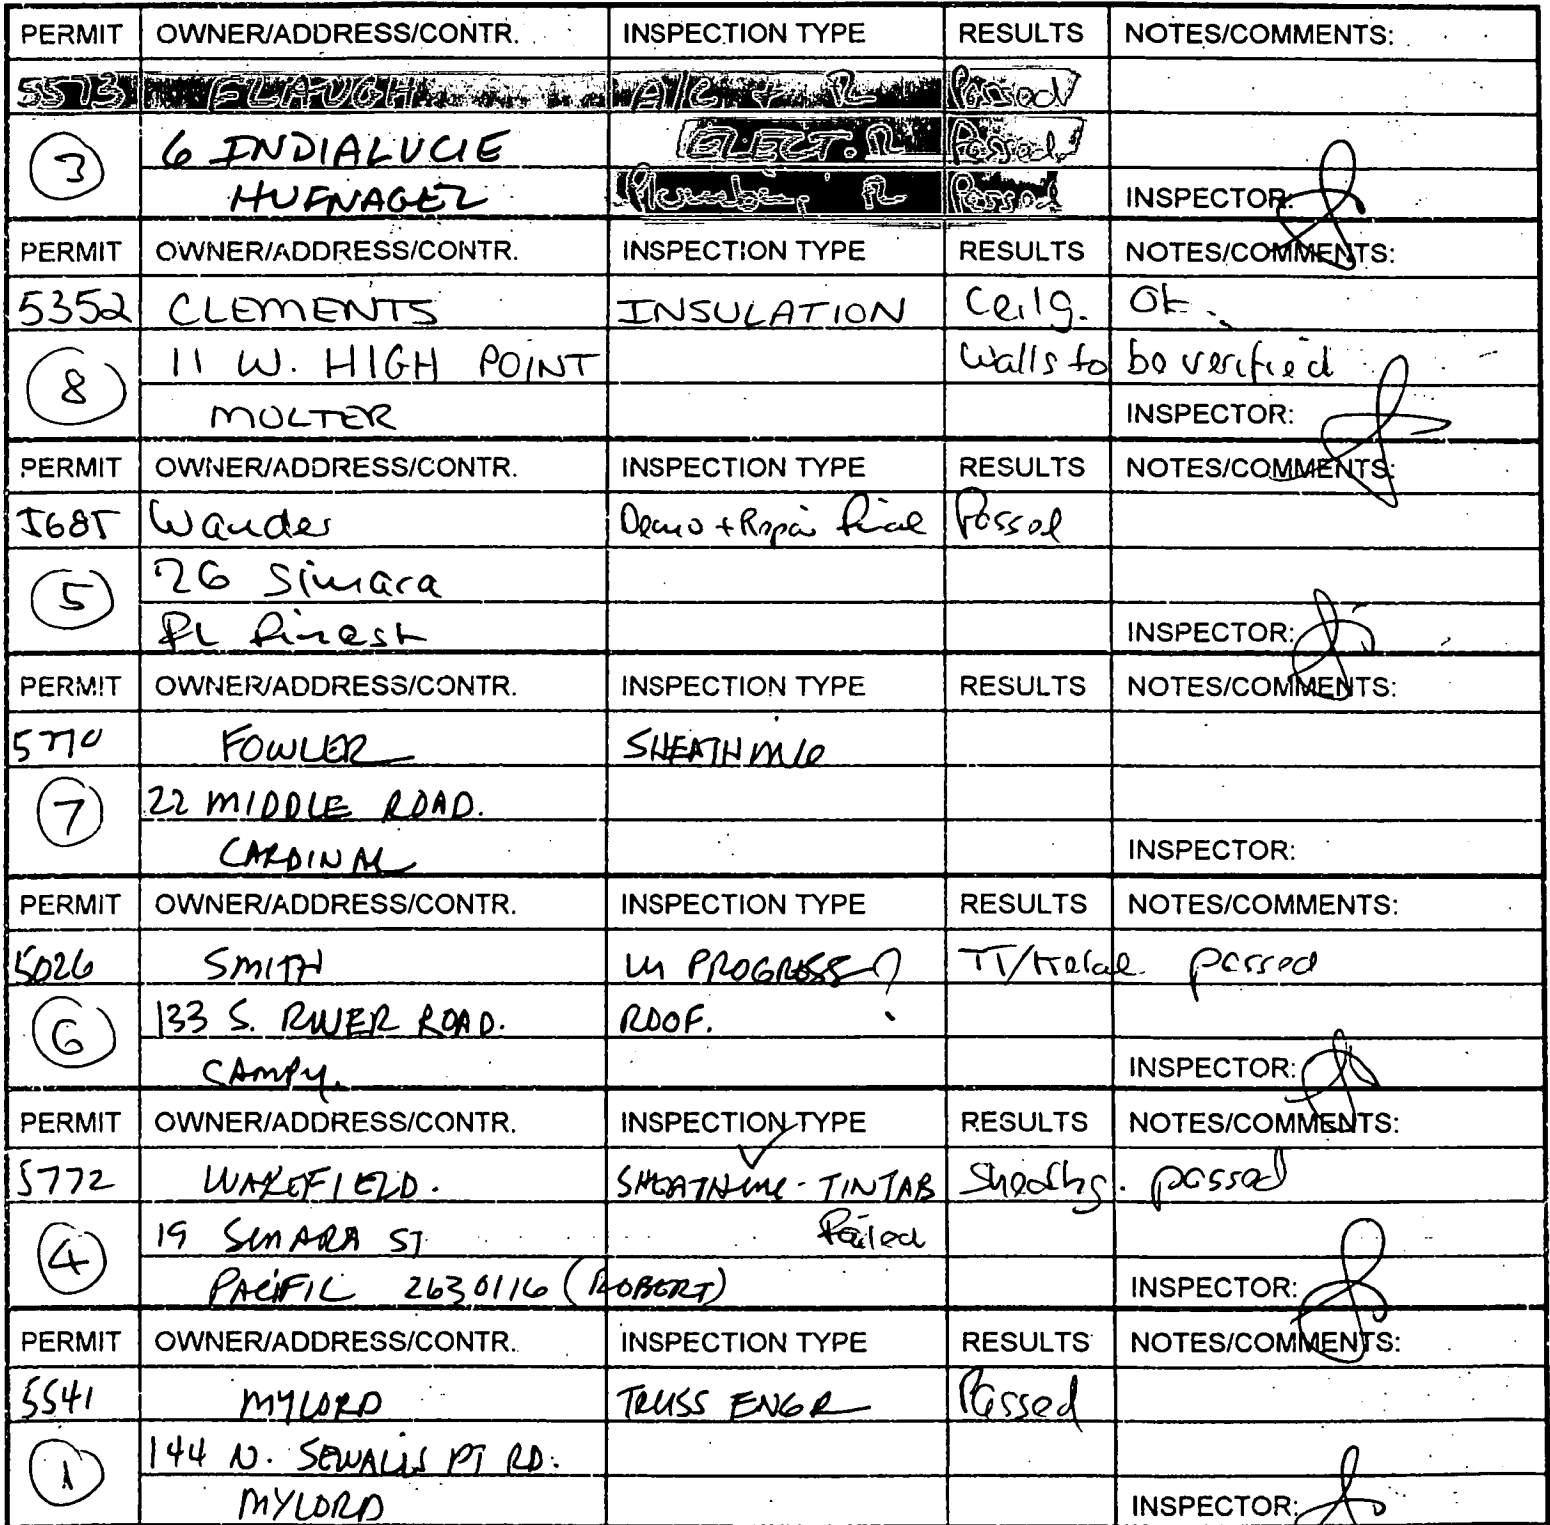 PERMIT OWNER/ADDRESS/CONTR. INSPECTION TYPE RESULTS NOTES/COMMENTS:
5573 FLAUGH A/C R Passed
3 6 INDIALUCIE ELECT. R Passed
HUFNAGEL Plumbing R Passed INSPECTOR:
PERMIT OWNER/ADDRESS/CONTR. INSPECTION TYPE RESULTS NOTES/COMMENTS:
5352 CLEMENTS INSULATION Ceilg. Ok.
8 11 W. HIGH POINT Walls to be verified
MOLTER INSPECTOR:
PERMIT OWNER/ADDRESS/CONTR. INSPECTION TYPE RESULTS NOTES/COMMENTS:
5685 Wander Demo + Repair final Passed
5 26 Simara
INSPECTOR:
PERMIT OWNER/ADDRESS/CONTR. INSPECTION TYPE RESULTS NOTES/COMMENTS:
5770 FOWLER SHEATHING
7 22 MIDDLE ROAD.
CARDINAL INSPECTOR:
PERMIT OWNER/ADDRESS/CONTR. INSPECTION TYPE RESULTS NOTES/COMMENTS:
5026 SMITH IN PROGRESS? passed
6 133 S. RIVER ROAD. ROOF.
INSPECTOR:
PERMIT OWNER/ADDRESS/CONTR. INSPECTION TYPE RESULTS NOTES/COMMENTS:
5772 WAKEFIELD. SHEATHING - TINTAB Sheathg. passed
4 19 SIMARA ST failed
PACIFIC 2630116 (ROBERT) INSPECTOR:
PERMIT OWNER/ADDRESS/CONTR. INSPECTION TYPE RESULTS NOTES/COMMENTS:
5541 MYLORD TRUSS ENGR Passed
1 144 N. SEWALLS PT RD.
MYLORD INSPECTOR: